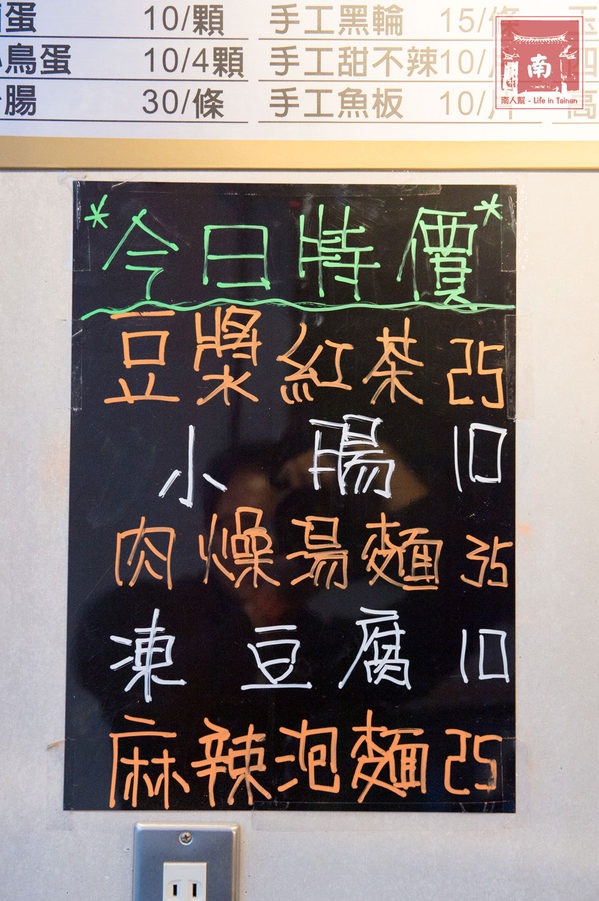 蛋 10/顆 手工黑輪 15/條
鳥蛋 10/4顆 手工甜不辣 10/
腸 30/條 手工魚板 10/片 高
南
南人幫 - Life in Tainan
*今日特價*
豆漿紅茶 25
小腸 10
肉燥湯麵 35
凍豆腐 10
麻辣泡麵 25